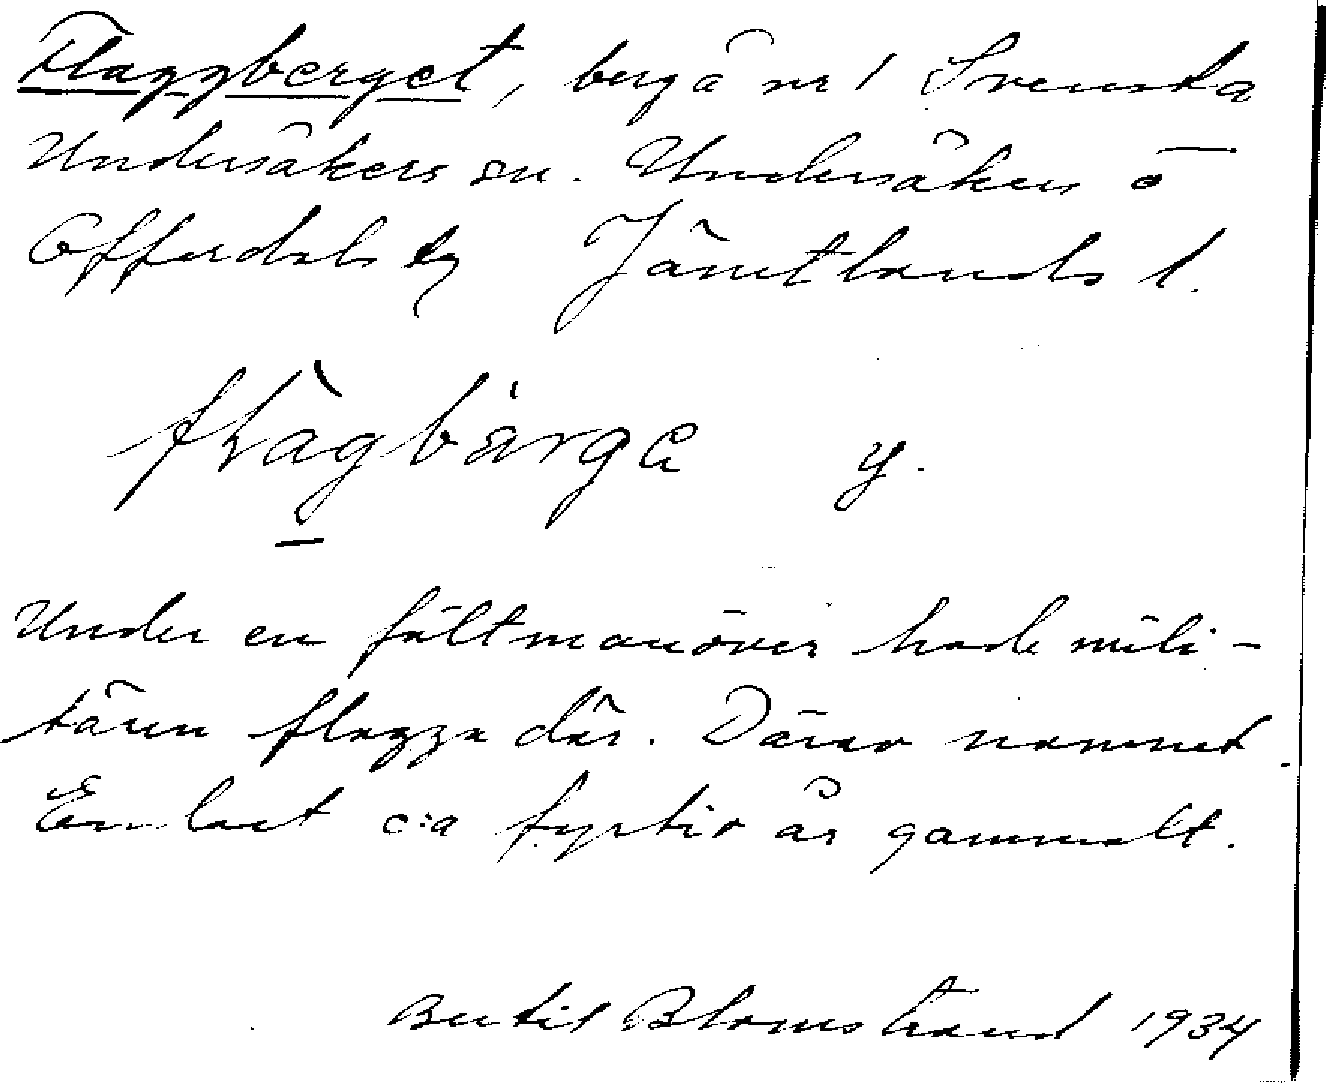 Flaggberget, berg å nr 1 Svensta
Undersåkers sn. Undersåkers o
Offerdals tg Jämtlands l.
flàgbärgə y.
Under en fältmanöver hade mili-
tären flagga där. Därav namnet.
Endast c:a fyrtio år gammalt.
Bertil Blomstrand 1934